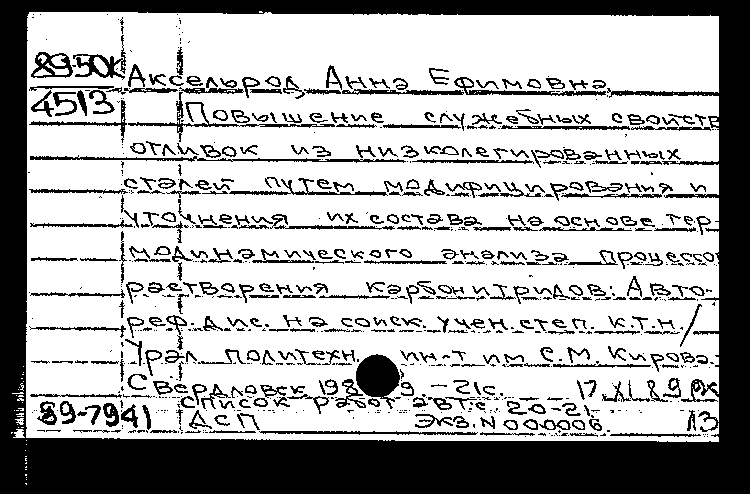 89-50К Аксельрод, Анна Ефимовна
4513 Повышение служебных свойств
отливок из низколегированных
сталей путем модифицирования и
уточнения их состава на основе тер-
модинамического анализа процессо
растворения карбонитридов: Авто-
реф. дис. на соиск. учен. степ. к.т.н. /
Урал политехн. ин-т им С.М. Кирова.
Свердловск 198 9 -21с. 17.XI 89
Список работ авт. с. 20-21
89-7941 ДСП Экз. N 000006